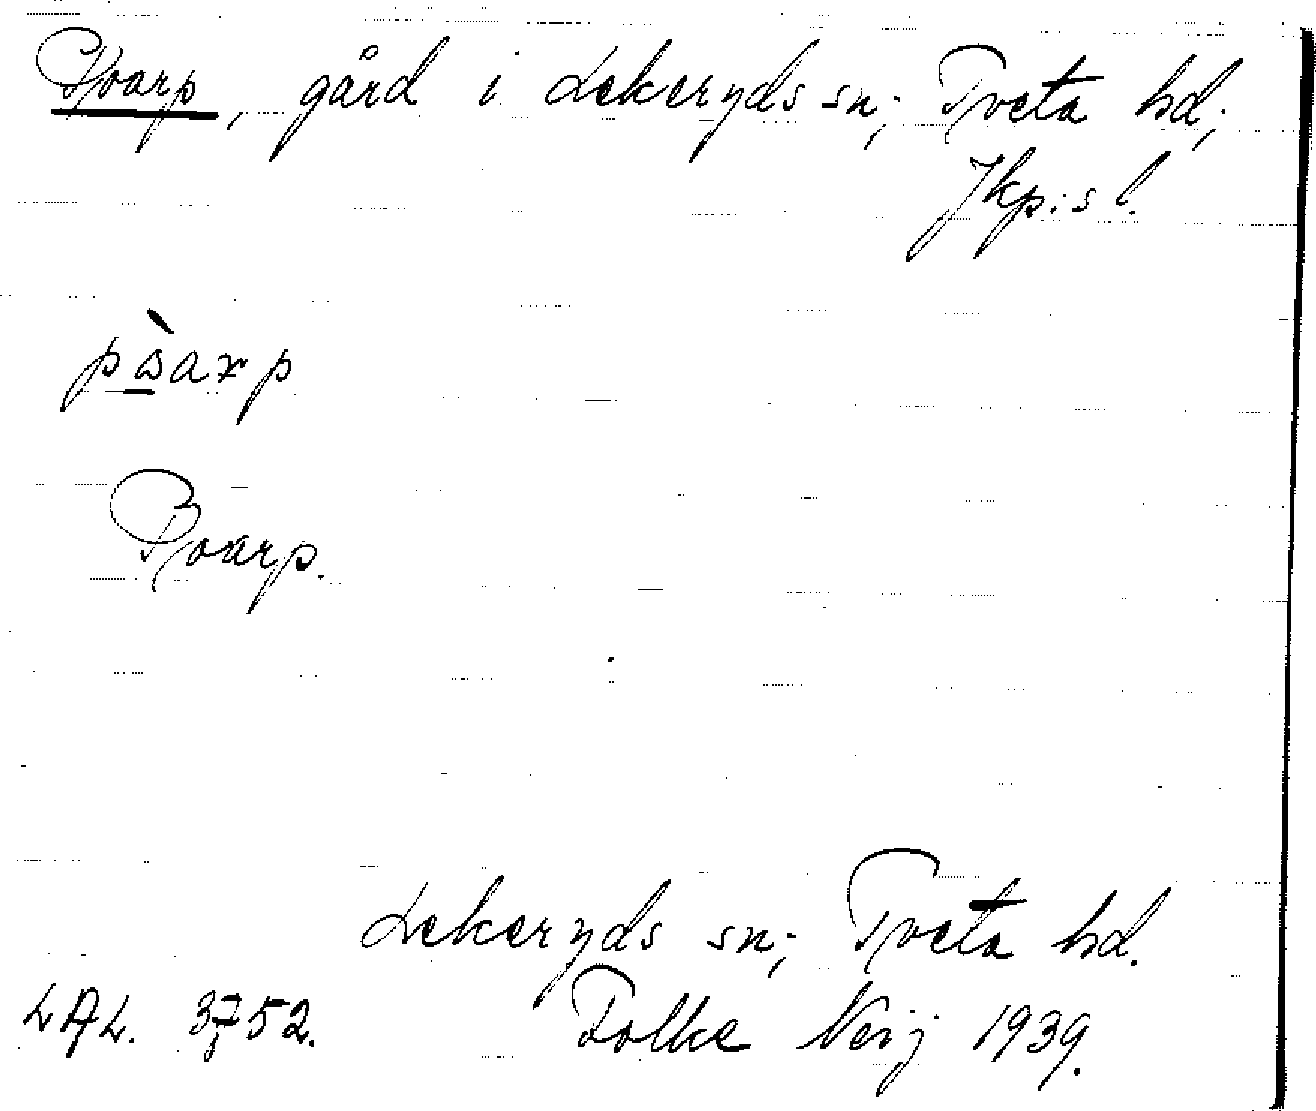 Poarp, gård i Lekeryds sn; Tveta hd;
Jkp:s l.
Poarp.
Lekeryds sn; Tveta hd.
LAL. 3752. Folke Neij 1939.